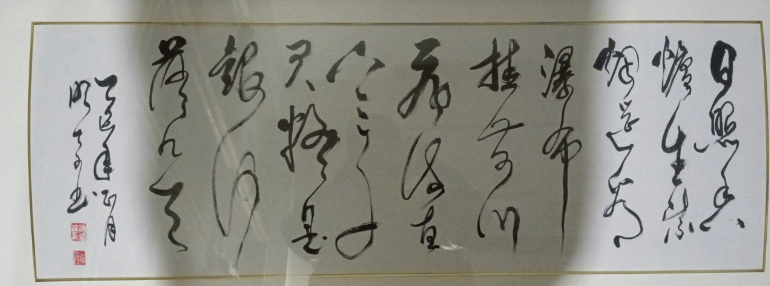 日照香
爐生紫
烟遥看
瀑布
挂前川
飛流直
下三千
尺疑是
銀河
落九天
乙巳年正月
明书